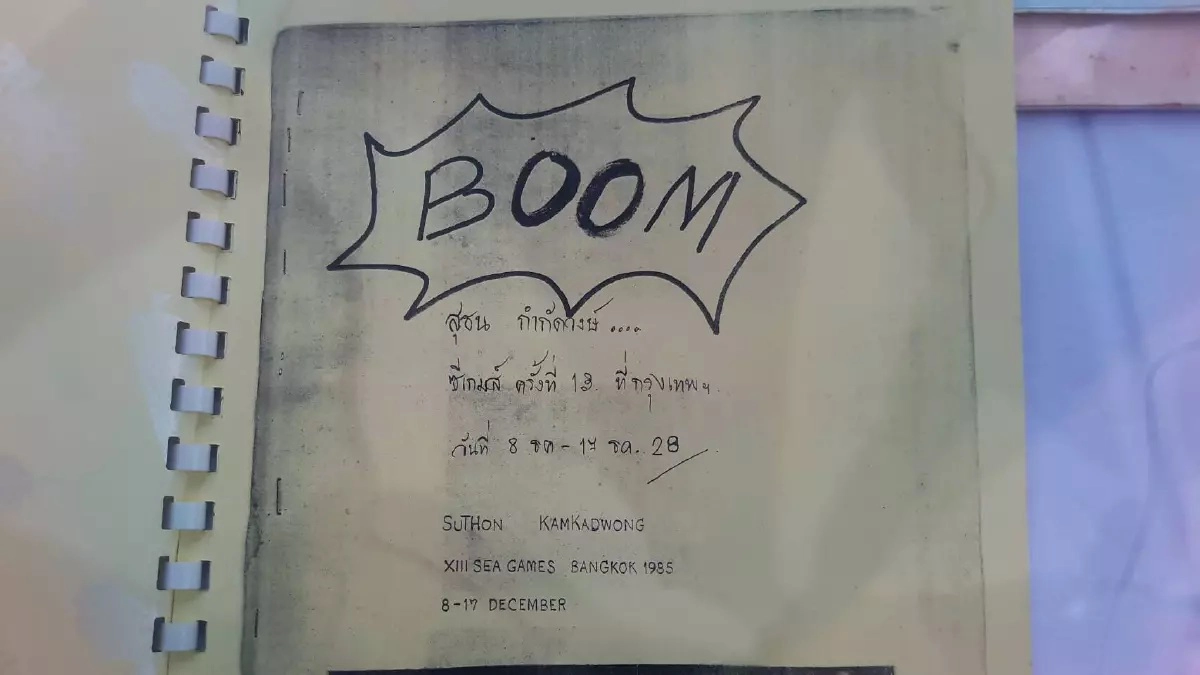 BOOM
สุธน กำกัดวงษ์....
ซีเกมส์ ครั้งที่ 13 ที่กรุงเทพฯ
วันที่ 8 ธค - 17 ธค. 28
SUTHON KAMKADWONG
XIII SEA GAMES BANGKOK 1985
8-17 DECEMBER